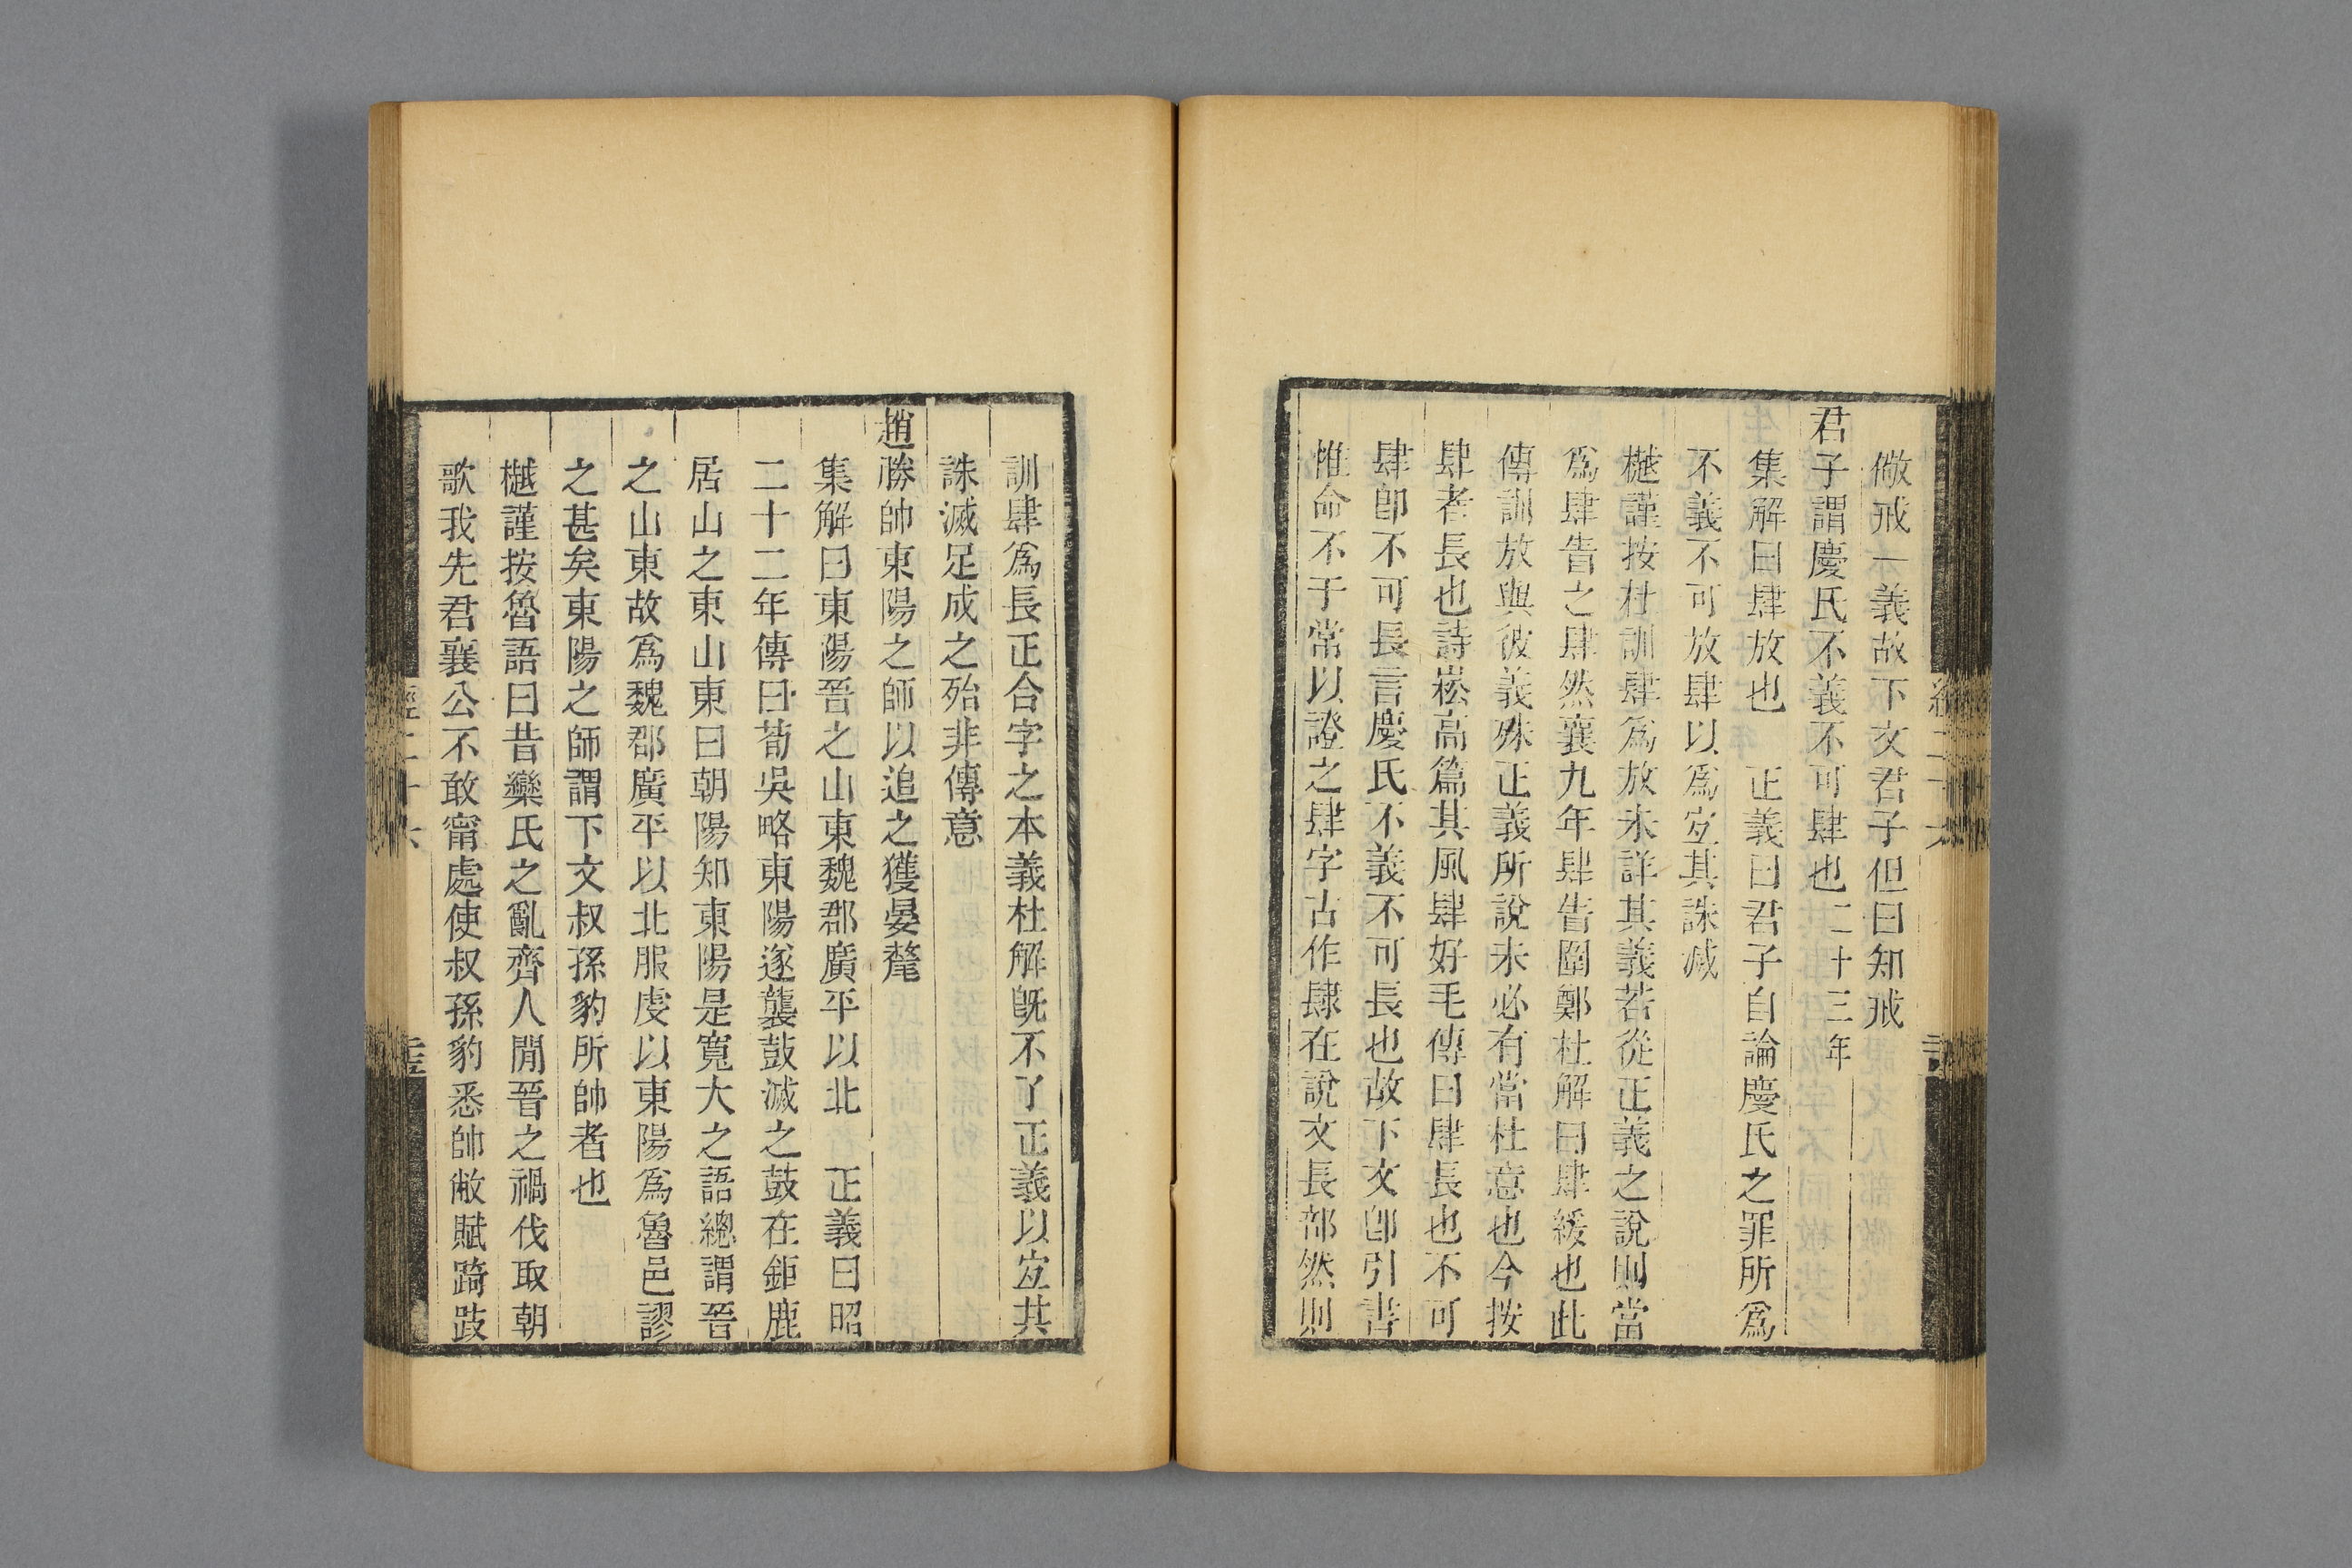 儆戒一義故下文君子但曰知戒
君子謂慶氏不義不可肆也二十三年
集解曰肆放也 正義曰君子自論慶氏之罪所爲
不義不可放肆以爲宐其誅滅
樾謹按杜訓肆爲放未詳其義若從正義之說則當
爲肆眚之肆然襄九年肆眚圍鄭杜解曰肆緩也此
傳訓放與彼義殊正義所說未必有當杜意也今按
肆者長也詩崧高篇其風肆好毛傳曰肆長也不可
肆卽不可長言慶氏不義不可長也故下文卽引書
惟命不于常以證之肆字古作肆在說文長部然則
訓肆爲長正合字之本義杜解旣不了正義以宐共
誅滅足成之殆非傳意
趙勝帥東陽之師以追之獲晏氂
集解曰東陽晉之山東魏郡廣平以北 正義曰昭
二十二年傳曰荀吳略東陽遂襲鼓滅之鼓在鉅鹿
居山之東山東曰朝陽知東陽是寬大之語總謂晉
之山東故爲魏郡廣平以北服虔以東陽爲魯邑謬
之甚矣東陽之師謂下文叔孫豹所帥者也
樾謹按魯語曰昔欒氏之亂齊人閒晉之禍伐取朝
歌我先君襄公不敢甯處使叔孫豹悉帥敝賦踦跂
經二十六